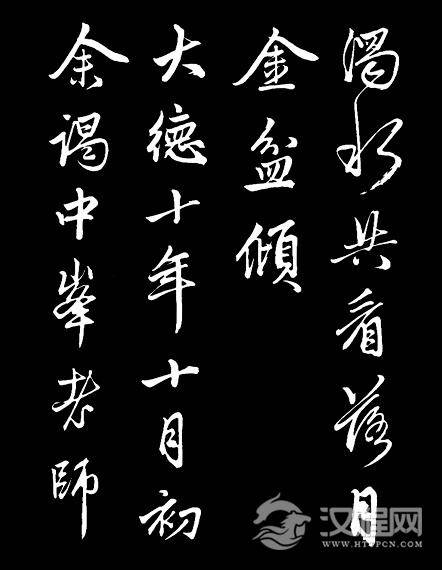 渴水共看落月
金盆傾
大德十年十月初
余謁中峯老師
汉程网
WWW.HTTPCN.COM